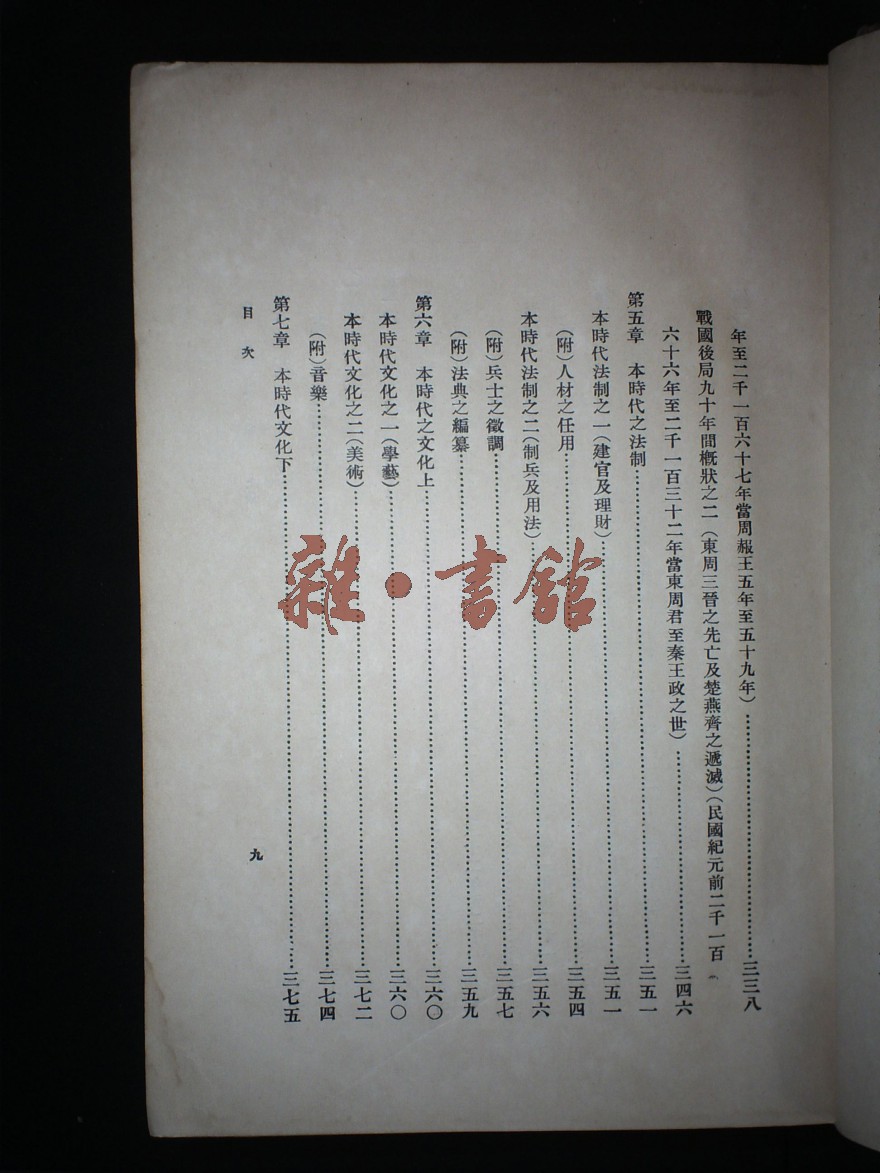 年至二千一百六十七年當周赧王五年至五十九年)…三三八
戰國後局九十年間概狀之二(東周三晉之先亡及楚燕齊之遞滅)(民國紀元前二千一百
六十六年至二千一百三十二年當東周君至秦王政之世)…三四六
第五章 本時代之法制…三五一
本時代法制之一(建官及理財)…三五一
(附)人材之任用…三五四
本時代法制之二(制兵及用法)…三五六
(附)兵士之徵調…三五七
(附)法典之編纂…三五九
第六章 本時代之文化上…三六〇
本時代文化之一(學藝)…三六〇
本時代文化之二(美術)…三七二
(附)音樂…三七四
第七章 本時代文化下…三七五
目次
九
雜·書館